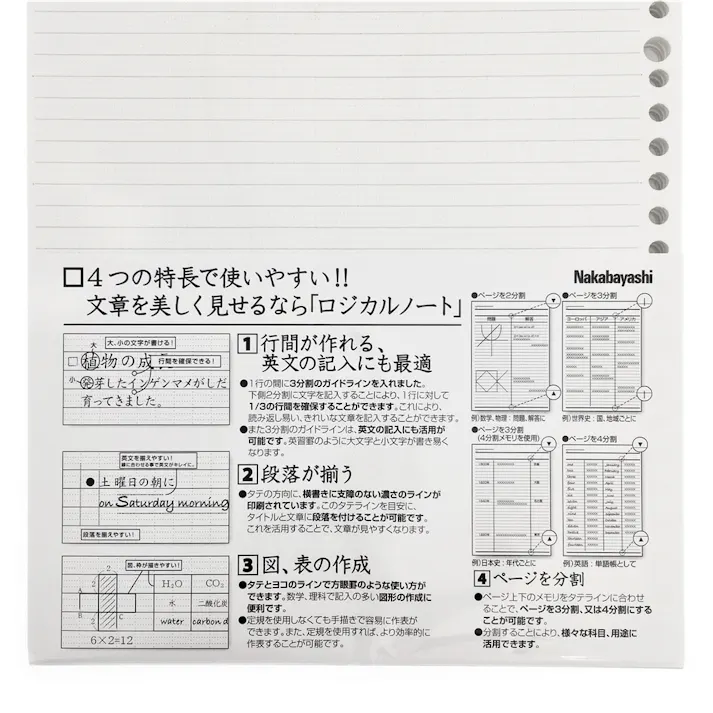 □4つの特長で使いやすい!!
文章を美しく見せるなら「ロジカルノート」
Nakabayashi
大、小の文字が書ける!
大
□植物の成長
行間を確保できる!
小
発芽したインゲンマメがしだ
育ってきました。
1 行間が作れる、
英文の記入にも最適
●1行の間に3分割のガイドラインを入れました。
下側2分割に文字を記入することにより、1行に対して
1/3の行間を確保することができます。これにより、
読み易い、きれいな文章を記入することができます。
●また3分割のガイドラインは、英文の記入にも活用が
可能です。英習罫のように大文字と小文字が書き易く
なります。
英文を揃えやすい!
線に合わせる事で英文がキレイに。
●土曜日の朝に
on Saturday morning
段落を揃えやすい!
2 段落が揃う
●タテの方向に、横書きに支障のない濃さのラインが
印刷されています。このタテラインを目安に、
タイトルと文章に段落を付けることが可能です。
これを活用することで、文章が見やすくなります。
図、枠が描きやすい!
2
A
B
C
2
6×2=12
H₂O
CO₂
水
二酸化炭
water
carbon d
3 図、表の作成
●タテとヨコのラインで方眼罫のような使い方が
できます。数学、理科で記入の多い図形の作成に
便利です。
●定規を使用しなくても手描きで容易に作表が
できます。また、定規を使用すれば、より効率的に
作表することが可能です。
●ページを2分割
問題
解答
例)数学、物理:問題、解答に
●ページを3分割
ヨーロッパ
アジア
アメリカ
例)世界史:国、地域ごとに
●ページを3分割
(4分割メモリを使用)
例)日本史:年代ごとに
●ページを4分割
例)英語:単語帳として
4 ページを分割
●ページ上下のメモリをタテラインに合わせ
ることで、ページを3分割、又は4分割にする
ことが可能です。
●分割することにより、様々な科目、用途に
活用できます。